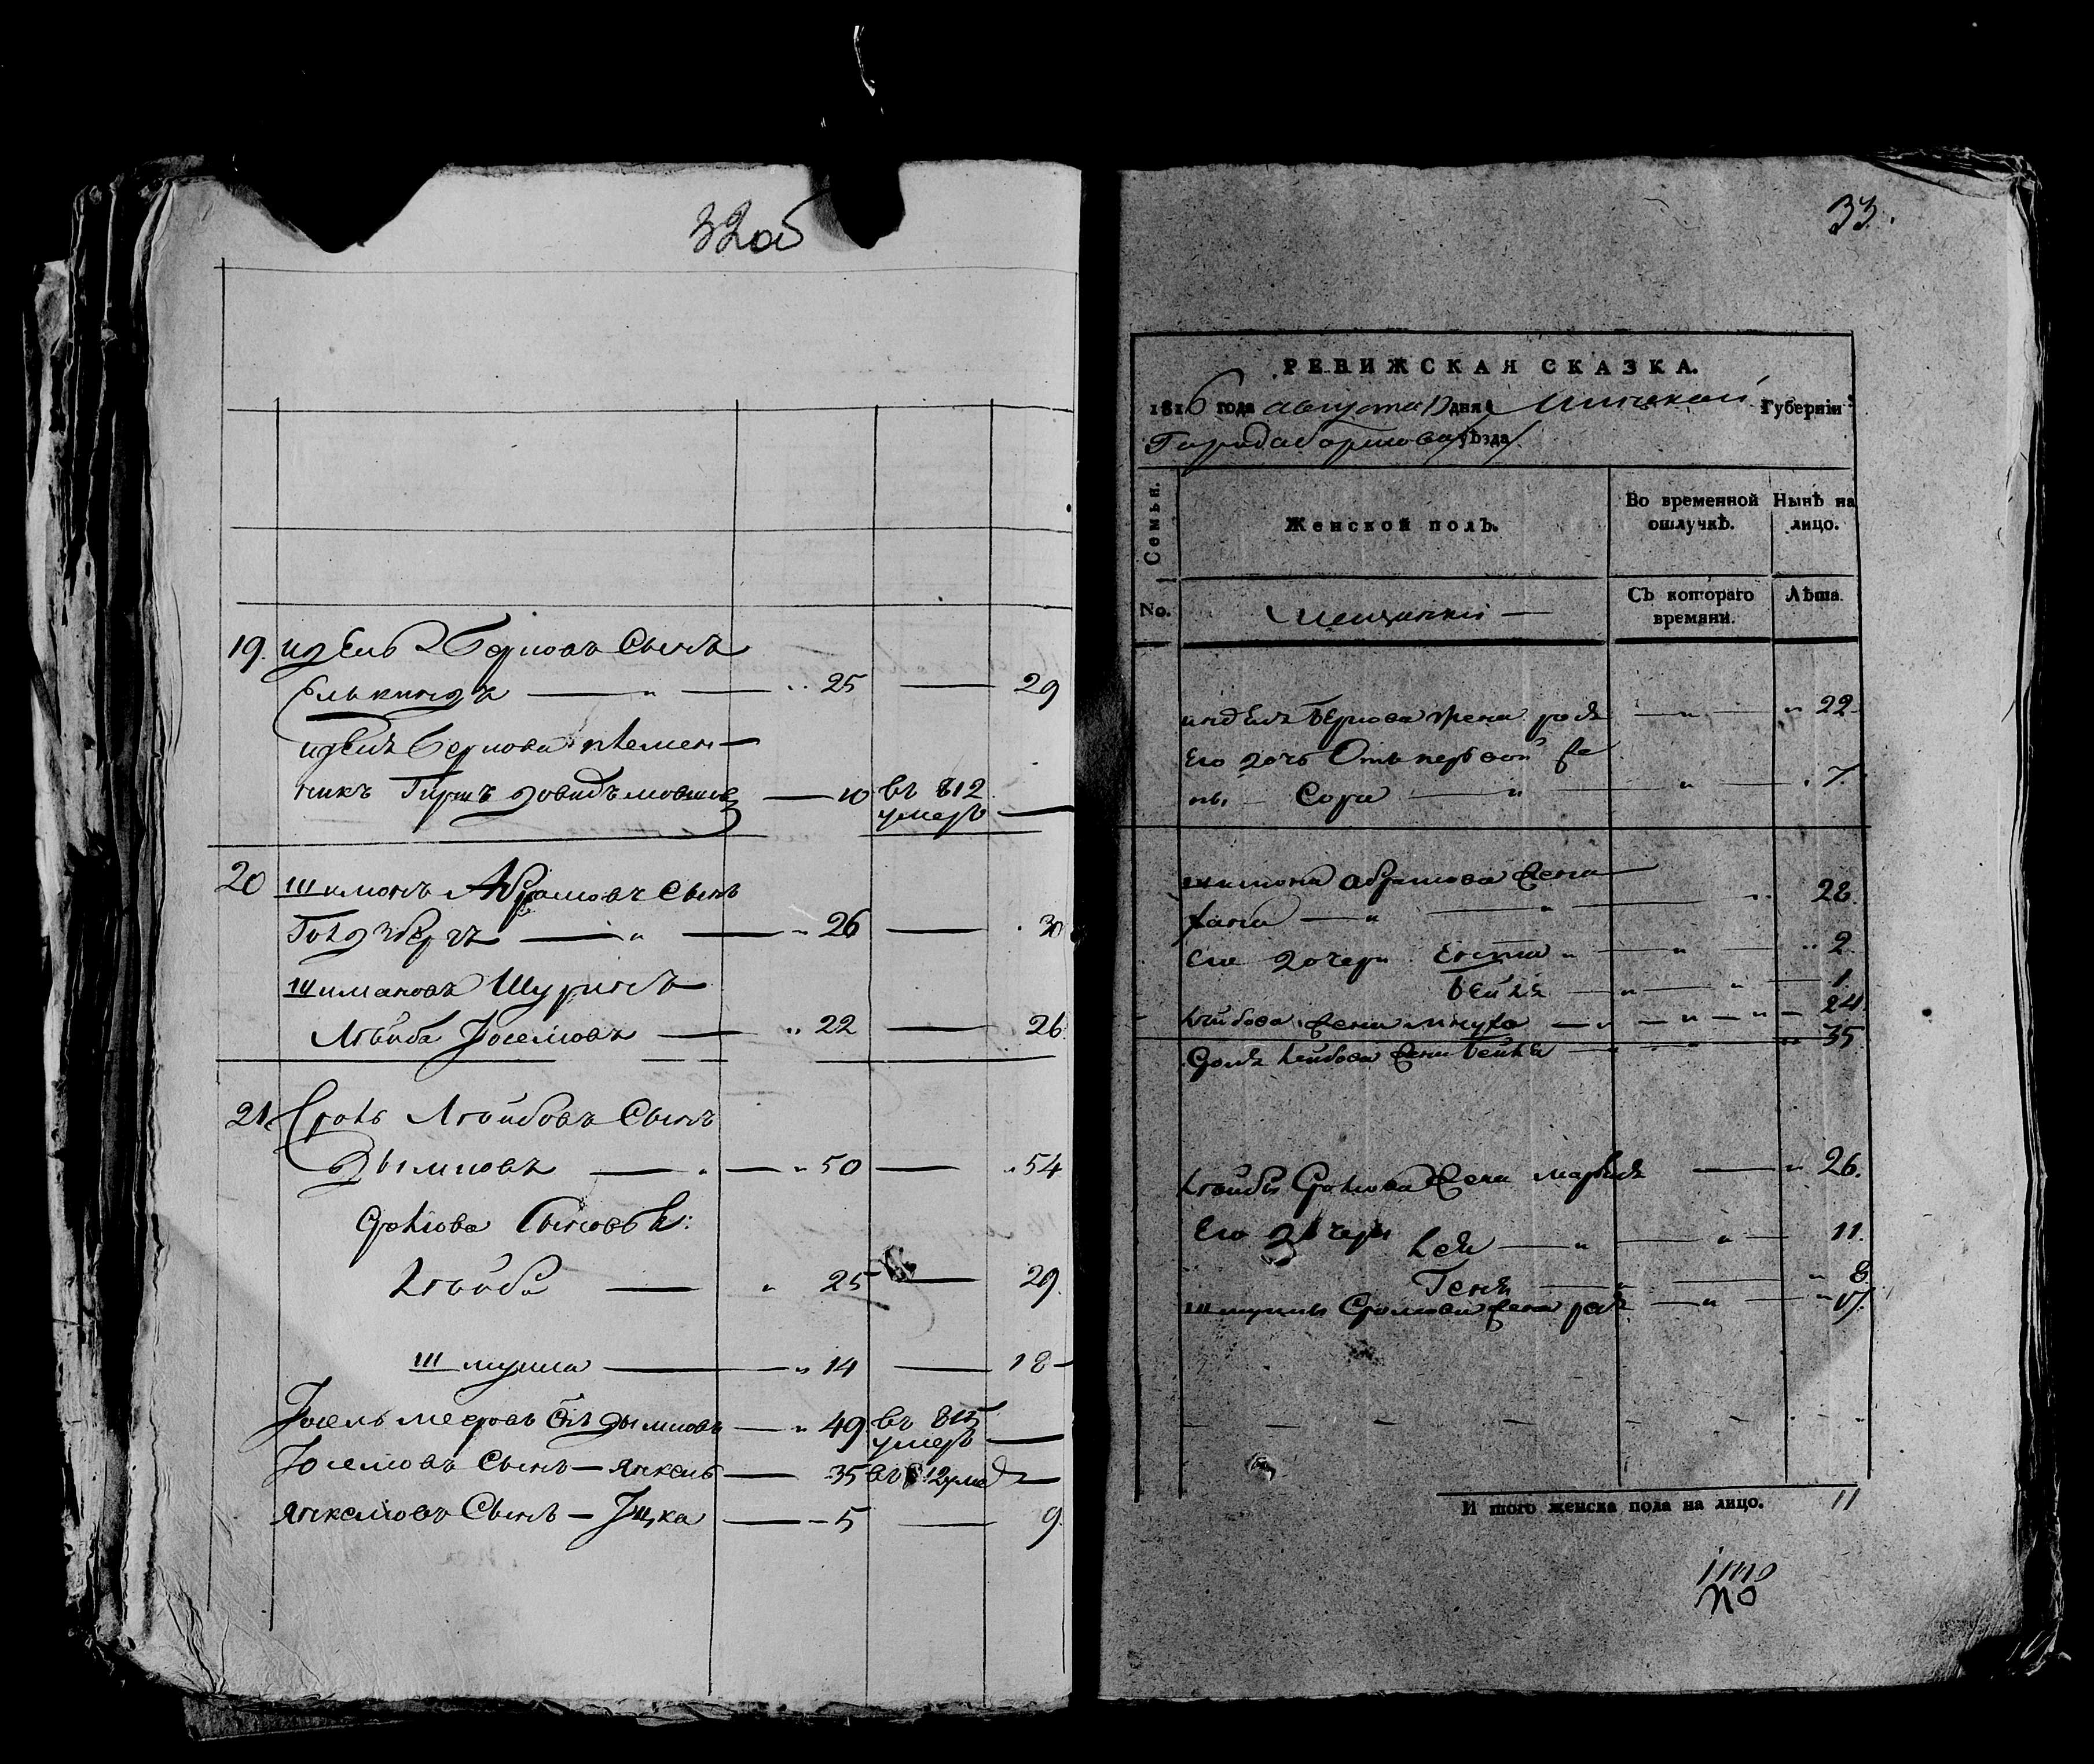 32об
19. Издель Берковъ Сынъ
Элькиндъ — " — " 25 — 29
изделя Беркова племен-
никъ Гиршъ довидъ мовшовъ — 10 въ 812
умеръ —
20 Шимонъ Абрамовъ Сынъ
Голдзбергъ — " — " 26 — 30
Шимановъ Шуринъ
Лейба Іоселіовъ — " 22 — 26
21. Сроль Лейбовъ Сынъ
Дымповъ — " — " 50 — 54
Сроліова Сыновья:
Лейба — " 25 — 29
Шмуила — " 14 — 18
Іосель мееровъ Сынъ Дымповъ — " 49 въ 815
умеръ —
Іоселіовъ Сынъ — янкель — 35 въ 812 умеръ
янкеліовъ Сынъ — Іцка — 5 — 9
33.
РЕВИЖСКАЯ СКАЗКА.
1816 года августа дня Минской Губерніи
Города Борисова уѣзда
Семьи.
Женской полъ.
Во временной отлучкѣ.
Нынѣ на лицо.
No.
Мещанки —
Съ котораго времяни.
Лѣта.
изделя Беркова жена роля — " — " 22
Его дочь Отъ первой же
ны — Сора — " — " — 7.
Шимона Абрамова жена
хана — " — " — 28.
Его дочери Естна " — " — " 2
бейля — " — " — 1
Лейбова жена мнуха — " — " — " — 24
Сроля Лейбова жена бейля — " — " 35
Лейбы Сроліова жена марьяся — " 26.
Его дочери Лея — " — " — 11.
Геня — " — " 8
Шмуилы Сроліова жена роля — " — " 17
И того женска пола на лицо. 11